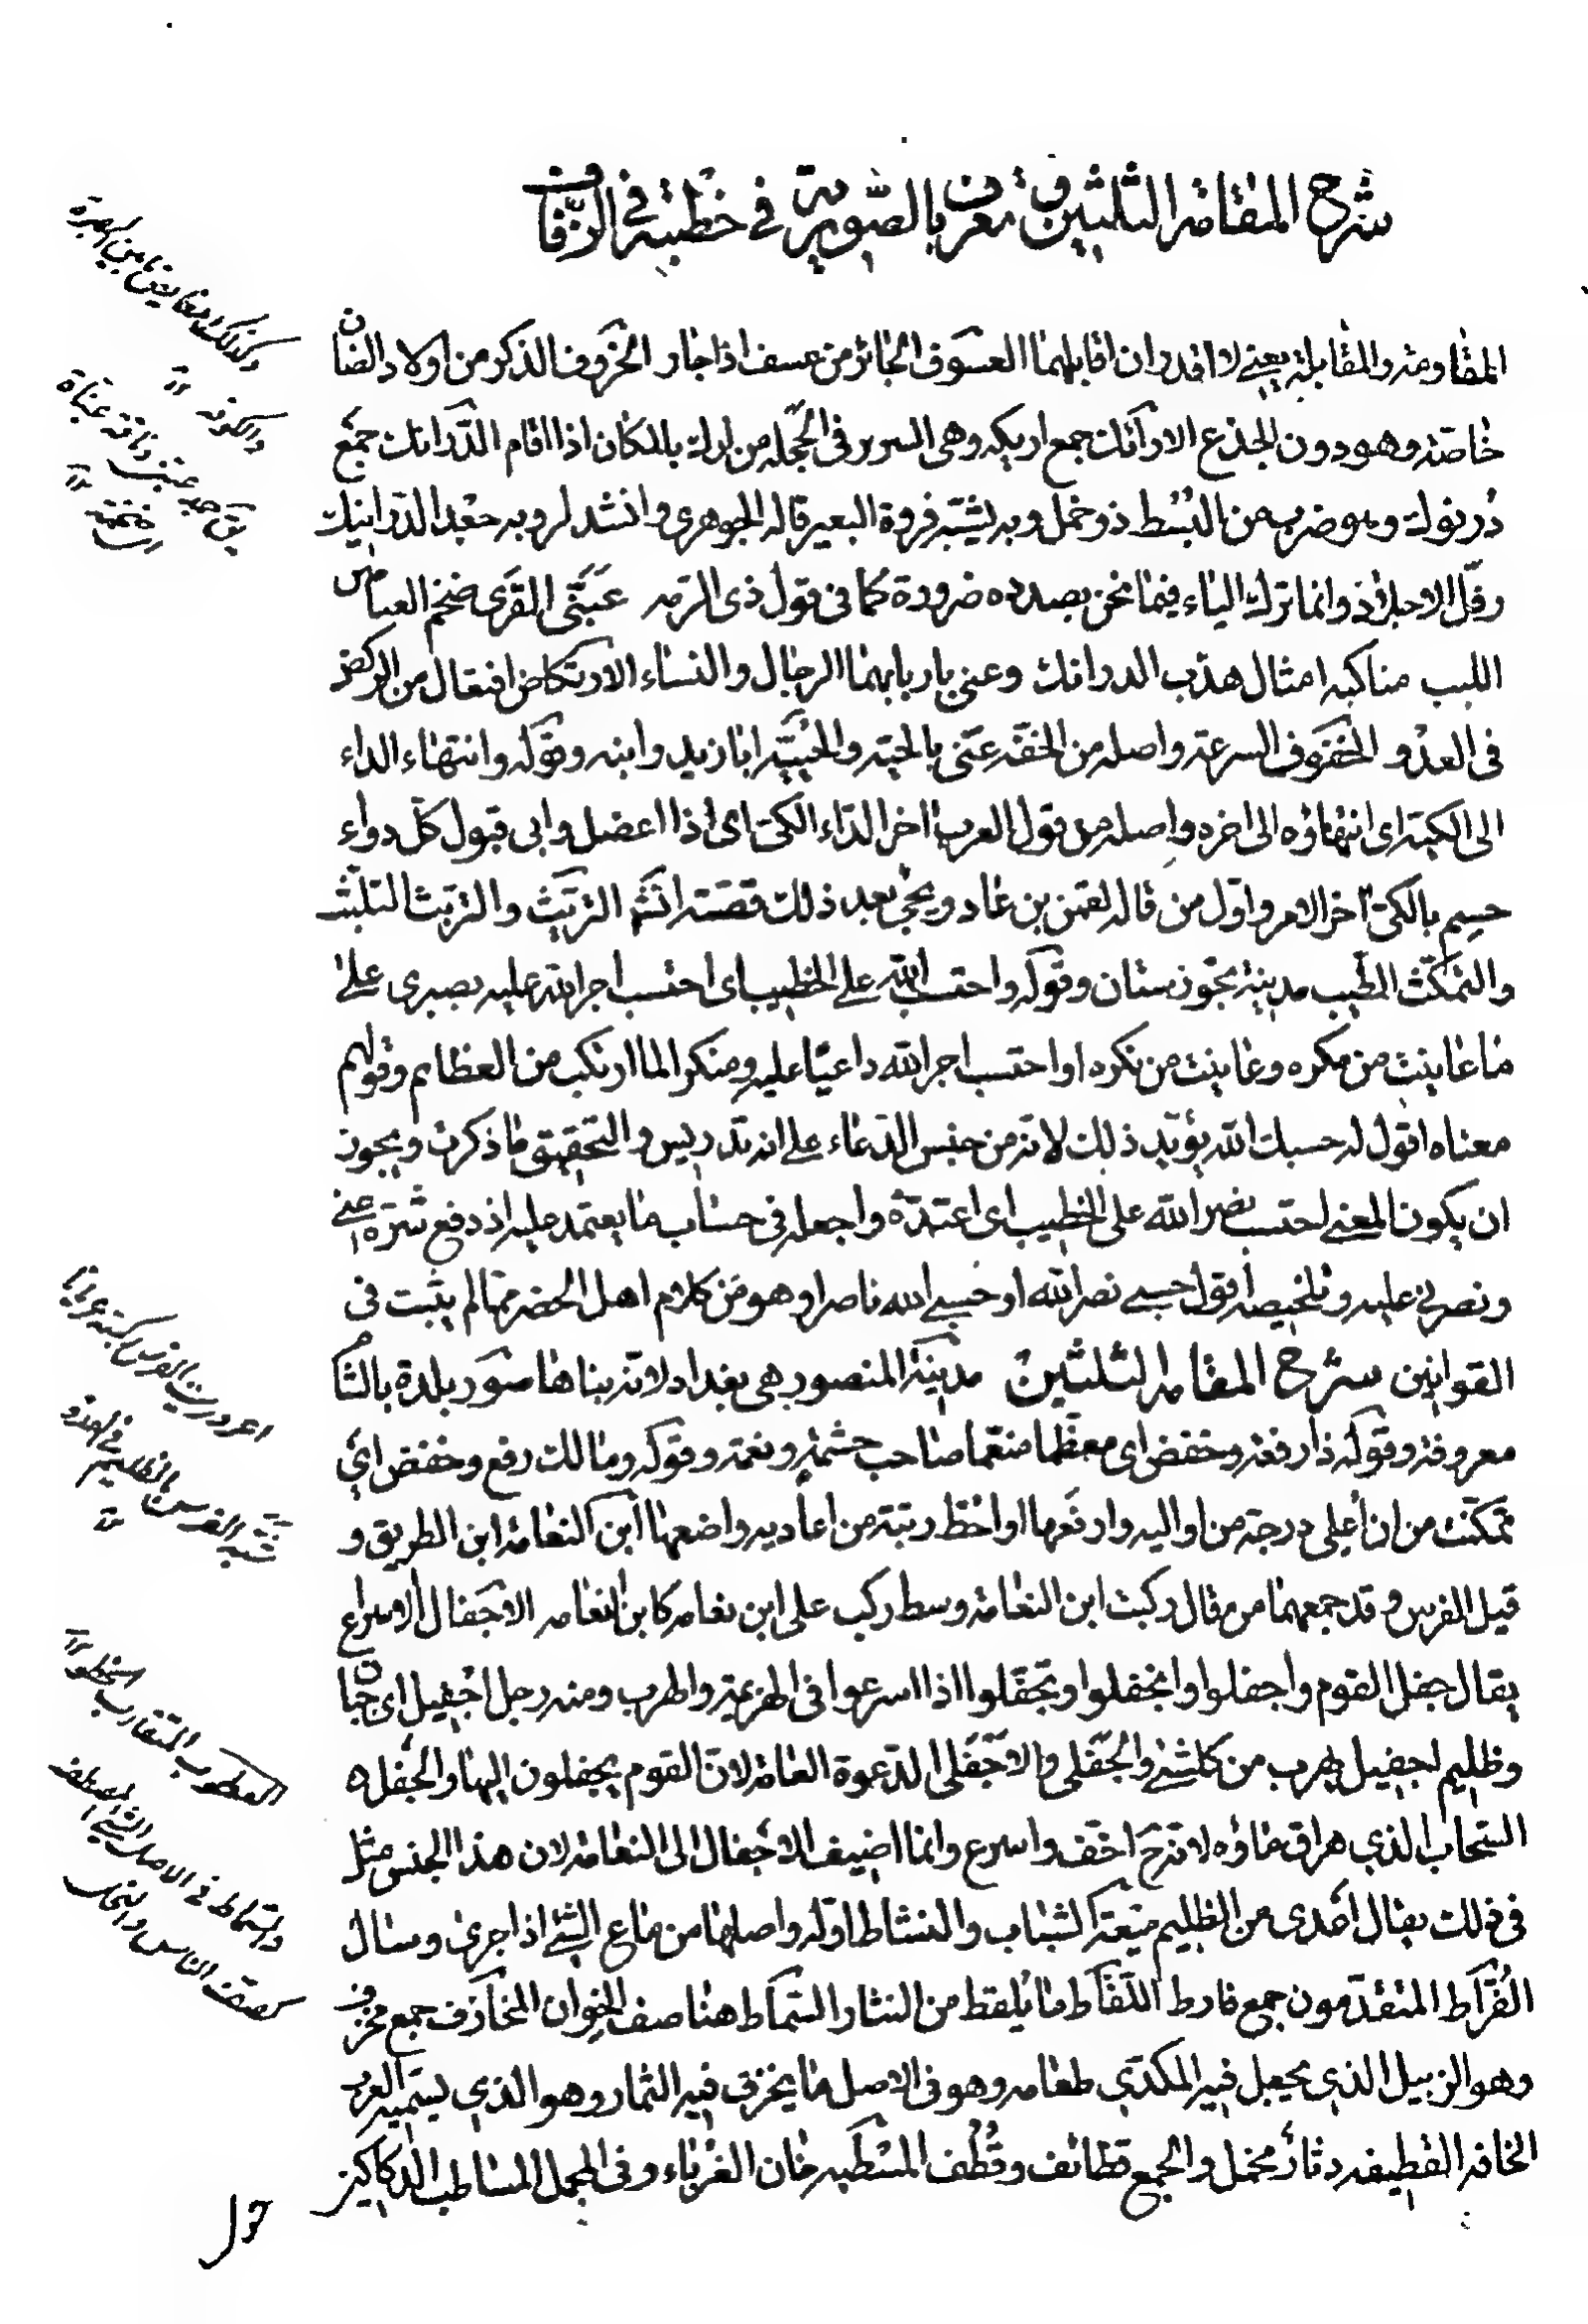 شرح المقامة الثلثين وتعرف بالصورية في خطبة في الزفاف
المقاومة والمقابلة يعني لا اقدر ان اقابلهما العسوف الجائر من عسف اذا جار الخروف الذكر من اولاد الضان
خاصة وهو دون الجذع الارآئك جمع اريكه وهي السرير في الحجله من ارك بالمكان اذا اقام الدرانك جمع
درنوك وهو ضرب من البسط ذو خمل وبه يشبه فروة البعير قاله الجوهري وانشد لروبه جعد الدرانيك
رفل الاجلاد وانما ترك الياء فيما نحن بصدده ضرورة كما في قول ذي الرمه عبنى القرى ضخم العثانين
اللبب مناكبه امثال هدب الدرانك وعنى باربابهما الرجال والنساء الارتكاض افتعال من الركض
في العدو الخفوف السرعة واصله من الخفة عنى بالحية والحيية ابا زيد وابنه وقوله وانتهاء الداء
الى الكية اى انتهاؤه الى اخره واصله من قول العرب اخر الداء الكى اى اذا اعضل وابى قبول كل دواء
حسم بالكى اخر الامر واول من قاله لقمن بن عاد ويجى بعد ذلك قصته انشم التريث والتربث التلبث
والتمكث الطيب مدينة بخوزستان وقوله واحتسب الله على الخطيب اى احتسب اجر الله عليه بصبرى على
ما عاينت من مكره وعاينت من نكره او احتسب اجر الله داعيا عليه ومنكرا لما ارتكب من العظايم وقولهم
معناه اقول له حسبك الله يؤيد ذلك لانه من جنس الدعاء على انه تدريس والتحقيق ما ذكرت ويجوز
ان يكون المعنى احتسب نصر الله على الخطيب اى اعتده واجعله في حساب ما يعتمد عليه اذ دفع شره عني
ونصرني عليه وتلخيصه اقول حسبي نصر الله او حسبي الله ناصرا وهو من كلام اهل الحضر مما لم يثبت في
القوانين شرح المقامه الثلثين مدينة المنصور هي بغداد لانه بناها صور بلدة بالشام
معروفة وقوله ذا رفعة وخفض اى معظما منعما صاحب حشمة ونعمة وقوله ومالك رفع وخفض اي
تمكنت من ان اعلي درجة من اواليه وارفعها او احط رتبة من اعاديه واضعها ابن النعامة ابن الطريق و
قيل الفرس وقد جمعهما من قال ركبت ابن النعامة وسط ركب على ابن نعامه كابن النعامه الاجفال الاسراع
يقال جفل القوم واجفلوا وانجفلوا وتجفلوا اذا اسرعوا في الهزيمة والهرب ومنه رجل اجفيل اى جبان
وظليم اجفيل يهرب من كل شئ والجفلى والاجفلى الدعوة العامة لان القوم يجفلون اليها والجفل
السحاب الذي هراق ماؤه لانه ح اخف واسرع وانما اضيف الاجفال الى النعامة لان هذا الجنس مثل
في ذلك يقال اعدى من الظليم ميعة الشباب والنشاط اوله واصلها من ماع الشئ اذا جرى وسال
الفراط المتقدمون جمع فارط اللقاط ما يلقط من النثار السماط هنا صف الخوان المخارف جمع مخرف
وهو الزبيل الذي يجعل فيه المكدي طعامه وهو في الاصل ما يخرف فيه الثمار وهو الذي يسميه العرب
الخافة القطيفه دثار مخمل والجمع قطائف وقطف المسطبه خان الغرباء وفي المجمل المساطب الدكاكين
حول
والسماط في الاصل الشئ المصطف
كصف الناس والنخل